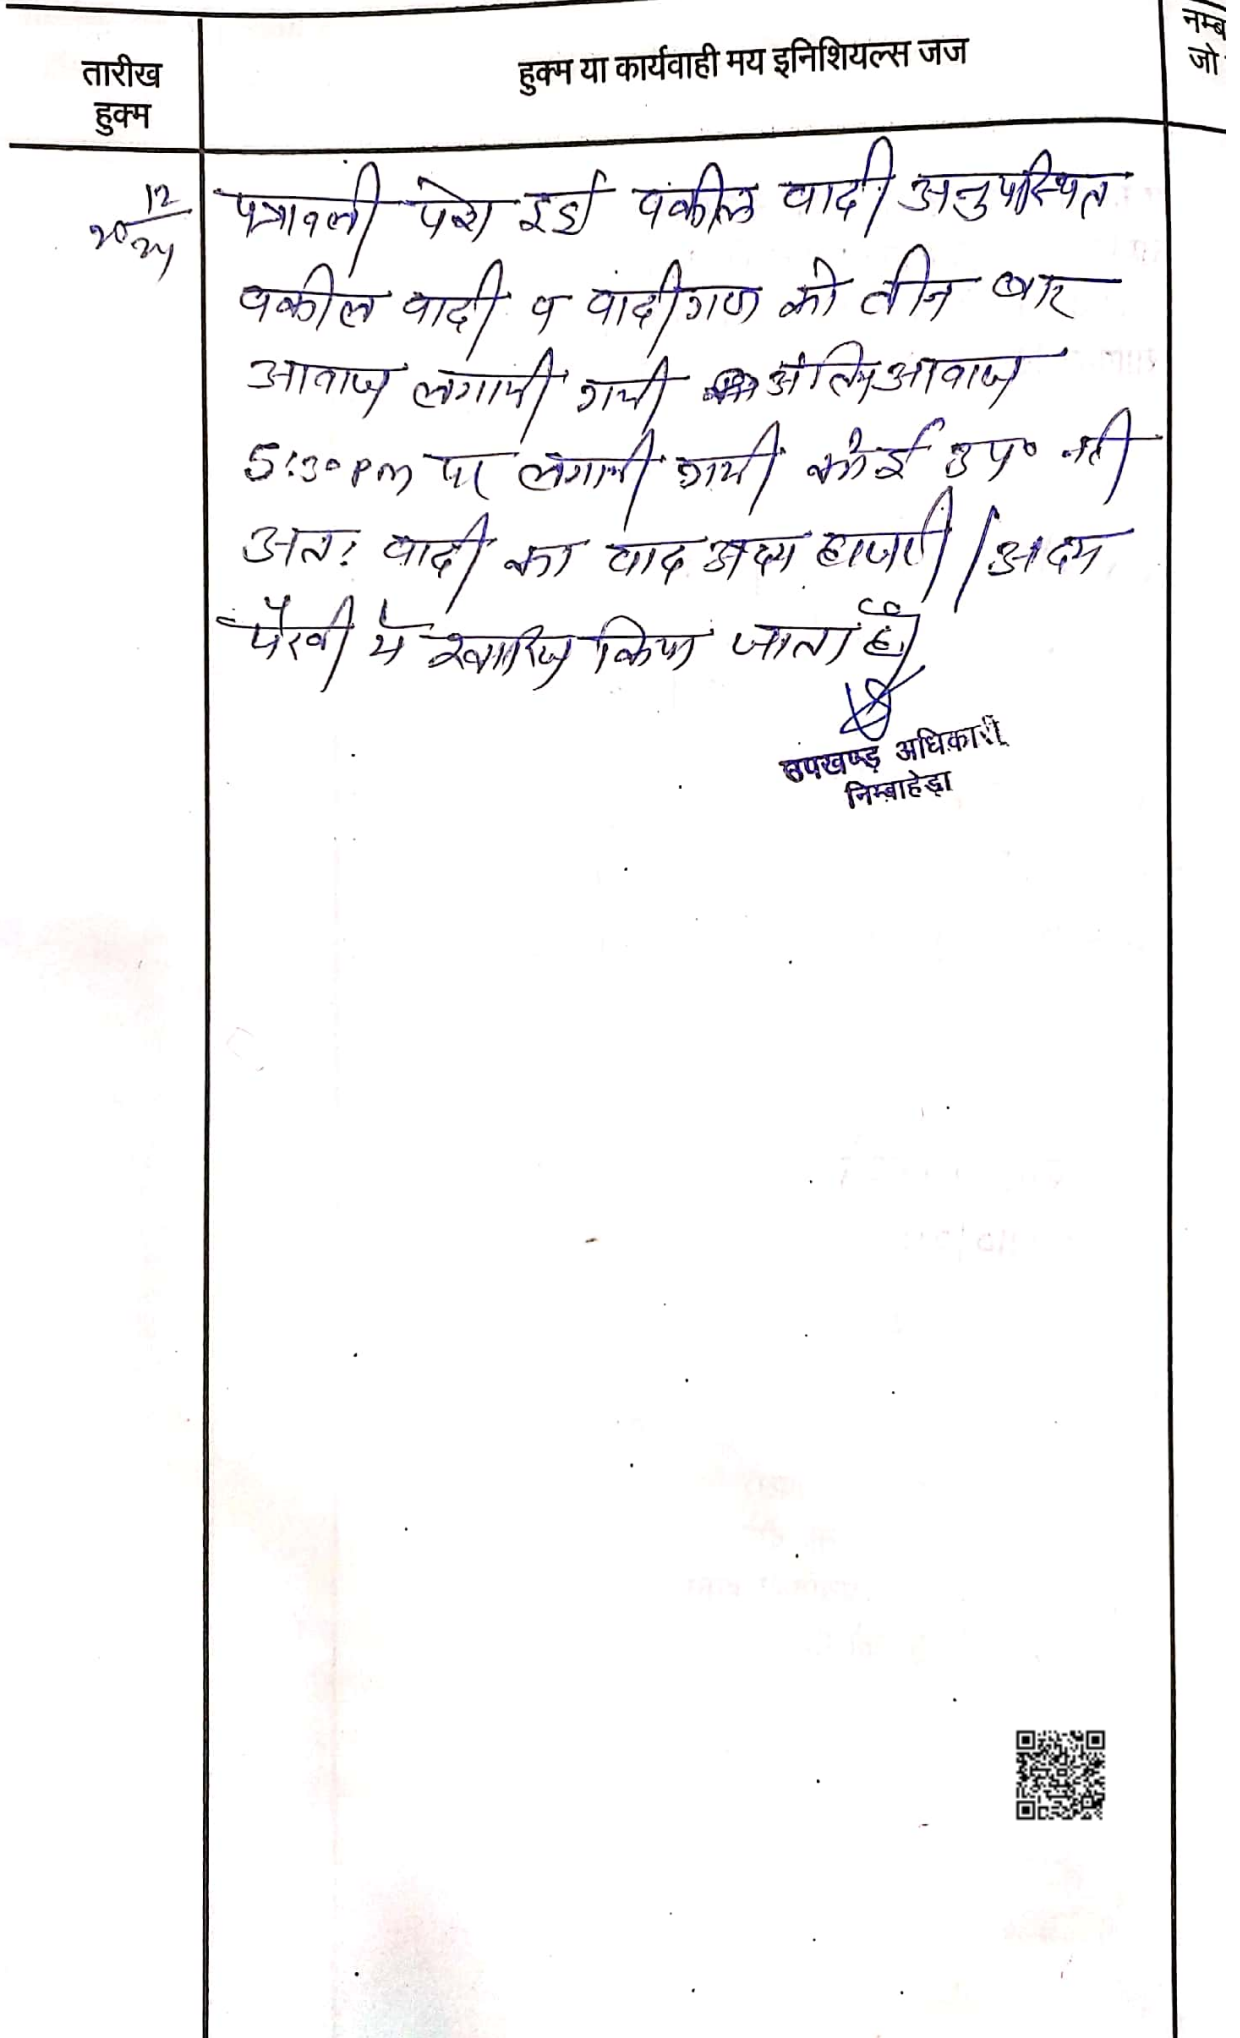 तारीख
हुक्म
हुक्म या कार्यवाही मय इनिशियल्स जज
नम्ब
जो
12
पत्रावली पेश हुई वकील वादी अनुपस्थित
वकील वादी व वादीगण को तीन बार
आवाज लगायी गयी अंतिम आवाज
5:30 PM पर लगायी गयी कोई उप० नही
अतः वादी का वाद अदम हाजरी / अदम
पैरवी में खारिज किया जाता है।
उपखण्ड़ अधिकारी
निम्बाहेड़ा